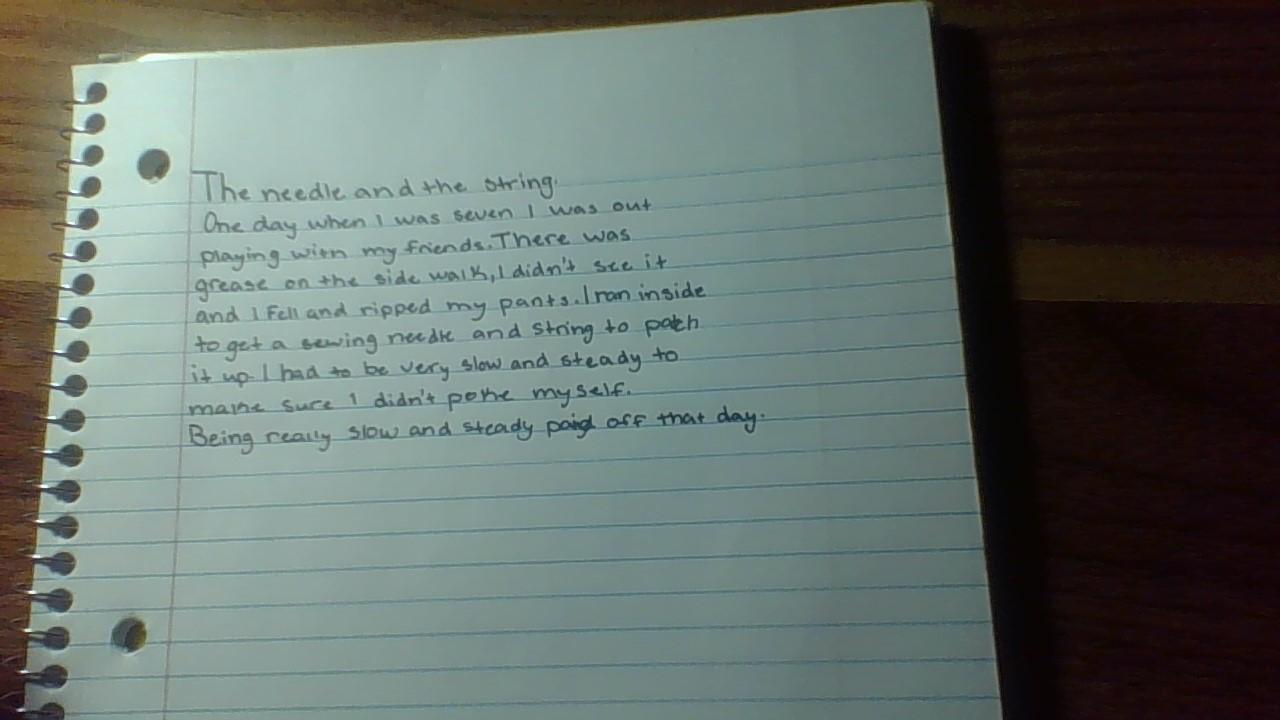 The needle and the string.
One day when I was seven I was out
playing with my friends. There was
grease on the side walk, I didn't see it
and I fell and ripped my pants. I ran inside
to get a sewing needle and string to patch
it up. I had to be very slow and steady to
make sure I didn't poke myself.
Being really slow and steady paid off that day.